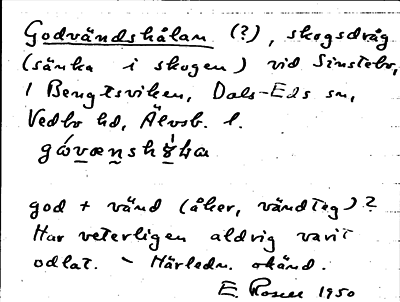 Godvändshålan (?), skogsdråg
(sänka i skogen) vid Sinstebo,
1 Bengtsviken, Dals-Eds sn,
Vedbo hd, Älvsb. l.
god + vänd (åker, vändteg)?
Har veterligen aldrig varit
odlat. – Härledn. okänd.
E Rosell 1950